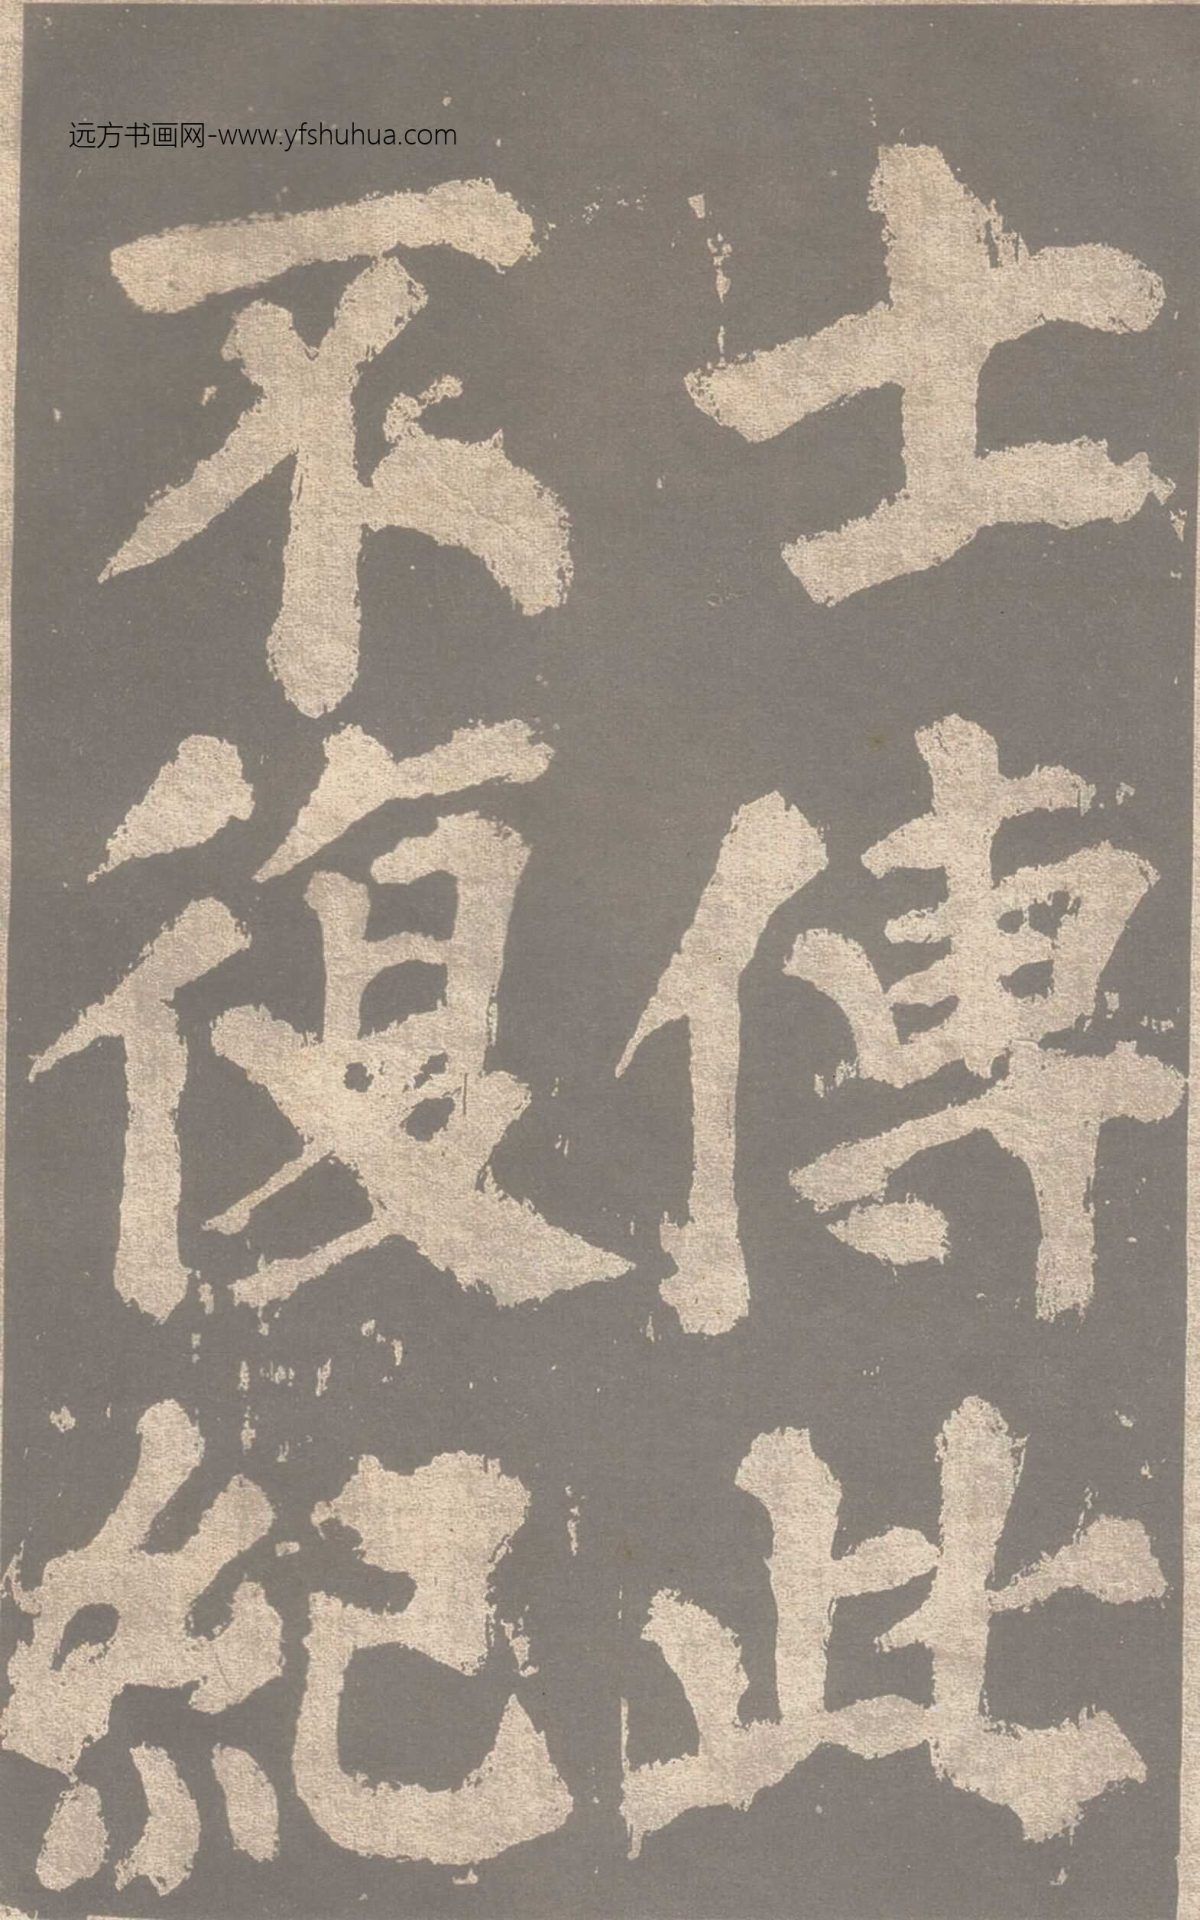 远方书画网-www.yfshuhua.com
士傳此
不復紀